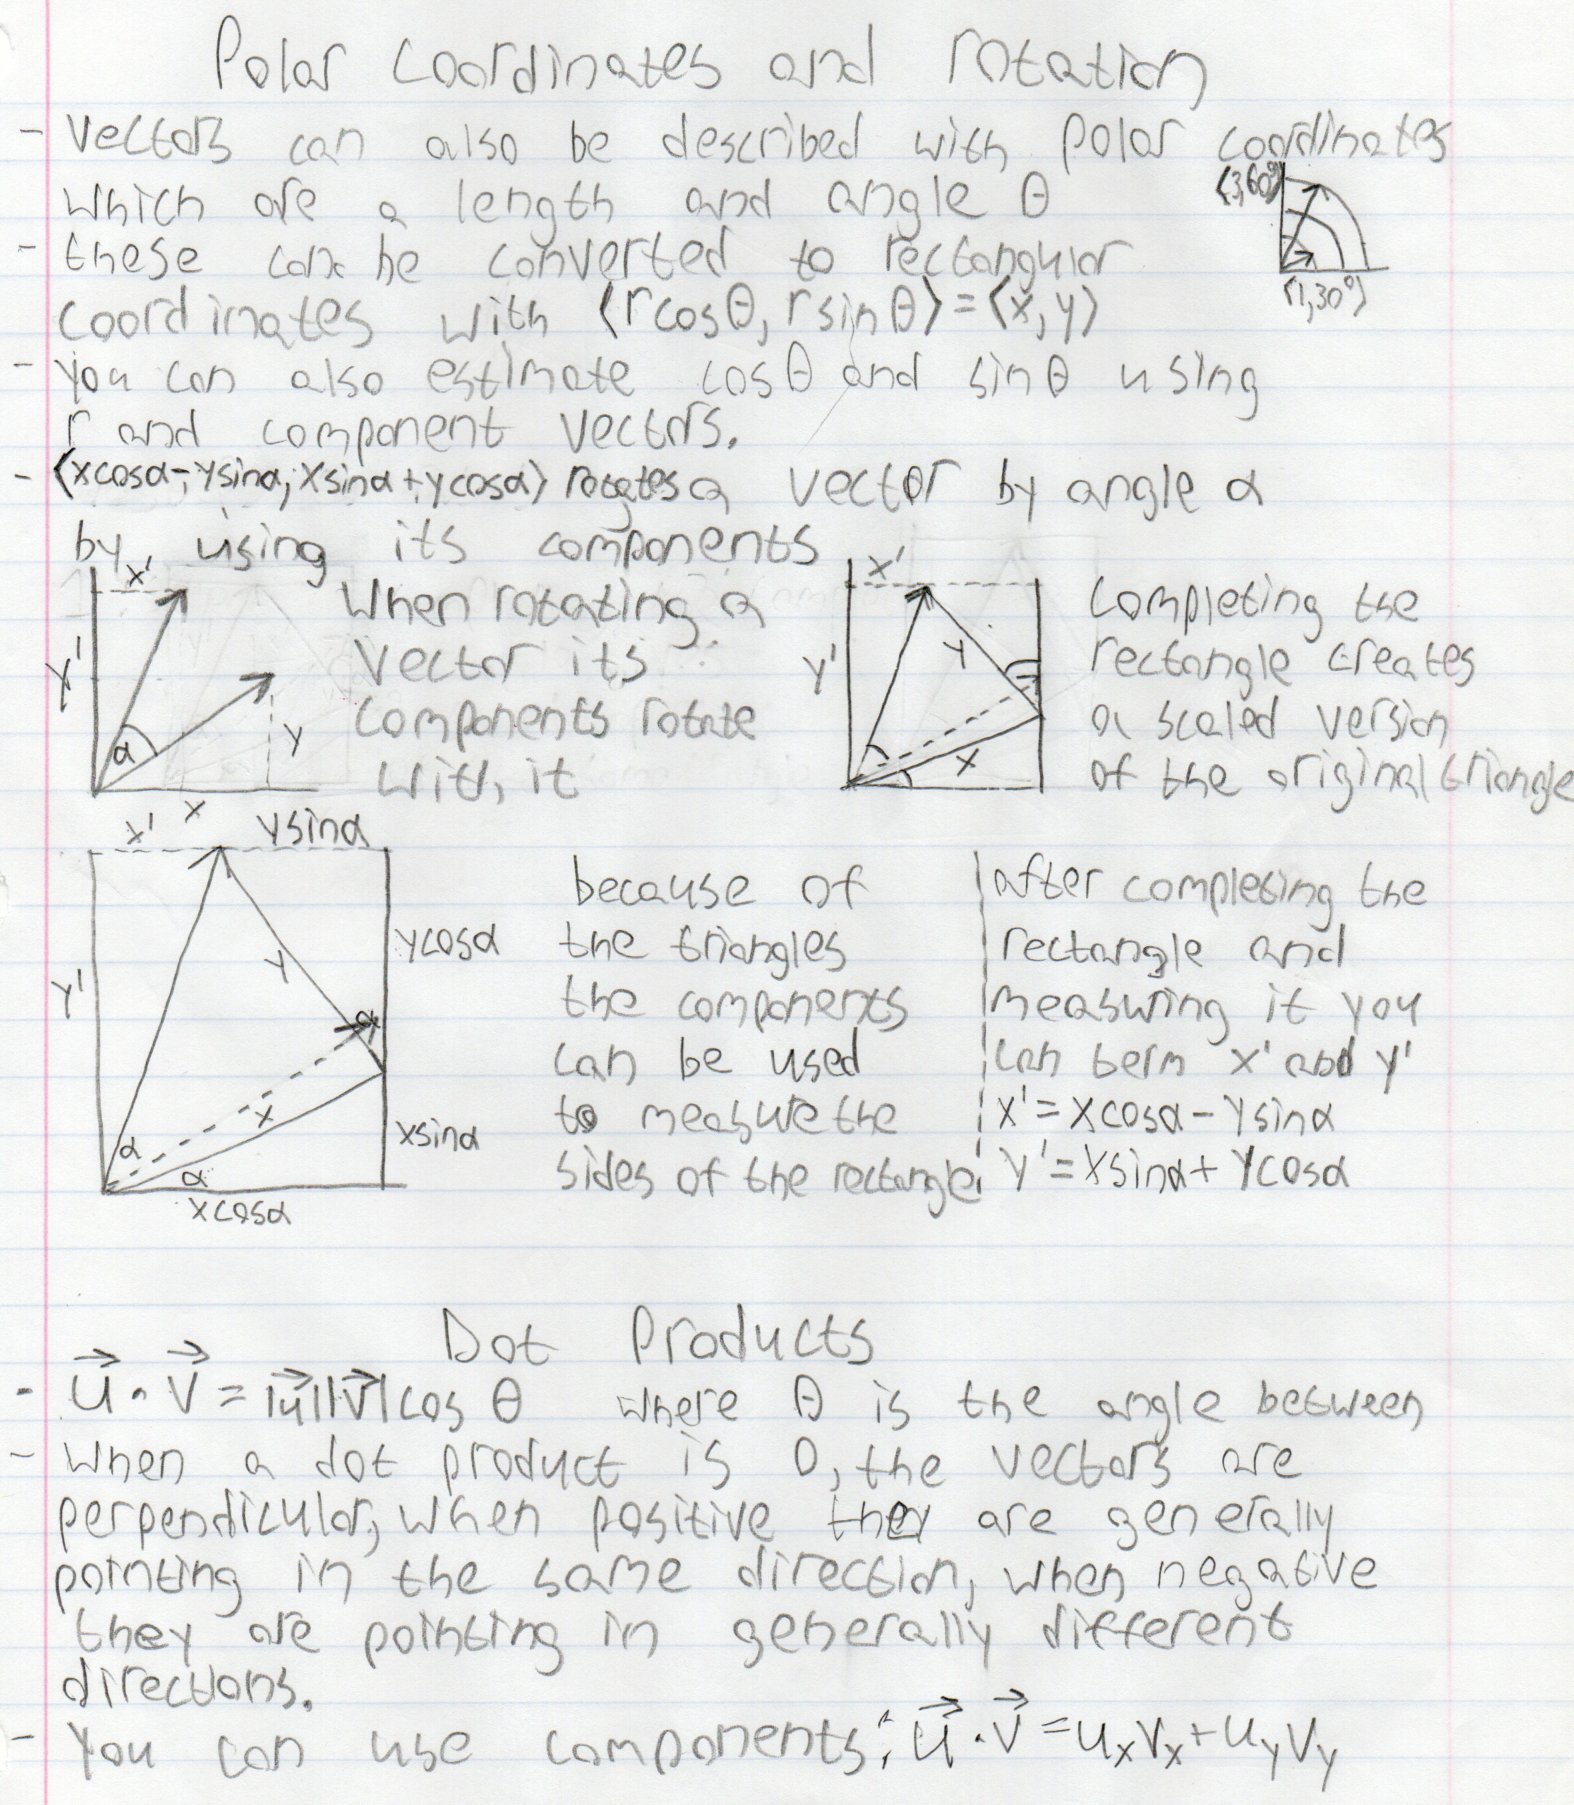 Polar coordinates and rotation
- Vectors can also be described with polar coordinates
which are a length and angle θ
⟨3,60°⟩
⟨1,30°⟩
- these can be converted to rectangular
coordinates with ⟨r cosθ, r sinθ⟩ = ⟨x, y⟩
- you can also estimate cosθ and sinθ using
r and component vectors.
- ⟨xcosα - ysinα, xsinα + ycosα⟩ rotates a vector by angle α
by using its components
x'
y'
α
y
x
When rotating a
vector its
components rotate
with it
x'
y'
y
x
Completing the
rectangle creates
a scaled version
of the original triangle
x'
ysinα
y'
y
ycosα
α
x
α
α
xsinα
xcosα
because of
the triangles
the components
can be used
to measure the
sides of the rectangle
after completing the
rectangle and
measuring it you
can x' and y'
x' = xcosα - ysinα
y' = xsinα + ycosα
Dot Products
- u⃗ · v⃗ = |u⃗||v⃗| cos θ where θ is the angle between
- when a dot product is 0, the vectors are
perpendicular, when positive they are generally
pointing in the same direction, when negative
they are pointing in generally different
directions.
- You can use components: u⃗ · v⃗ = uₓvₓ + u_y v_y